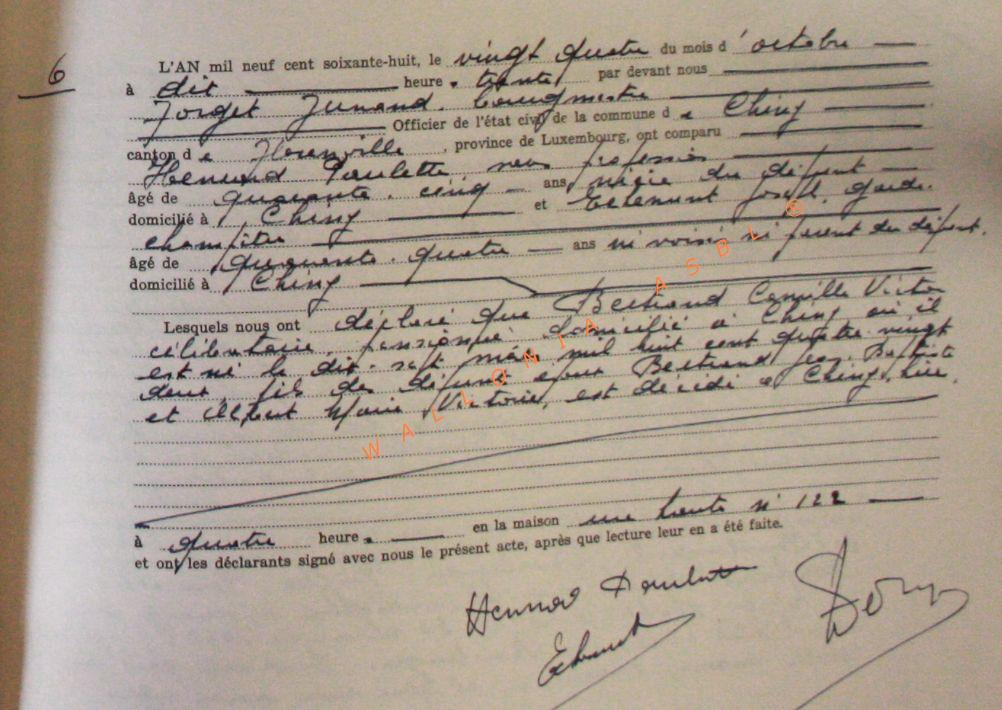 6
L'AN mil neuf cent soixante-huit, le vingt quatre du mois d'octobre
à dix heure s trente par devant nous
Forget Fernand. Bourgmestre
Officier de l'état civil de la commune d e Chiny
canton d e Florenville, province de Luxembourg, ont comparu
Henrard Paulette, sans profession
âgé de quarante-cinq ans, nièce du défunt
domicilié à Chiny et Joseph, garde
champêtre
âgé de quarante-quatre ans ni voisin ni parent du défunt.
domicilié à Chiny
Lesquels nous ont déclaré que Bertrand Camille Victor
célibataire, pensionné, domicilié à Chiny où il
est né le dix-sept mai mil huit cent quatre-vingt
deux, fils des défunts époux Bertrand Jean Baptiste
et Marie Victoire, est décédé à Chiny, hier,
à quatre heure s en la maison une haute n° 122
et ont les déclarants signé avec nous le présent acte, après que lecture leur en a été faite.
Henrard Paulette
WALLONIA ASBL ©